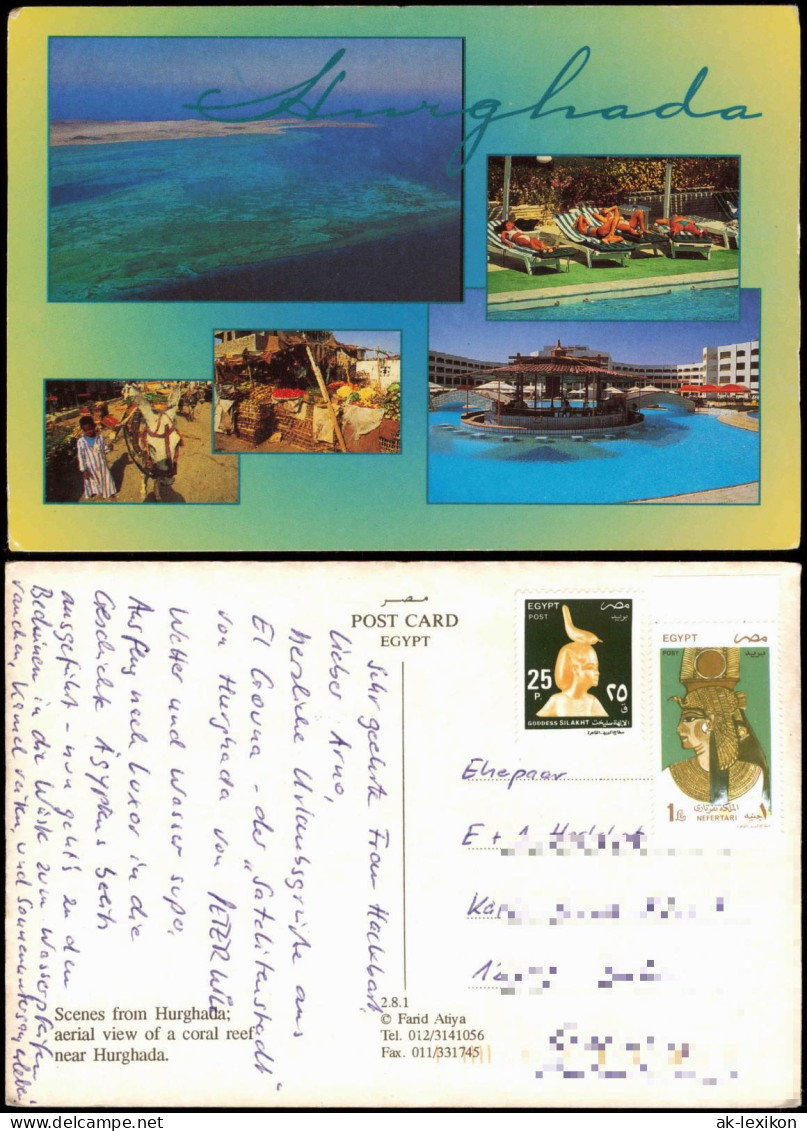 Hurghada
مصر
POST CARD
EGYPT
EGYPT مصر
POST بريد
25 ٢٥
P. ق
GODDESS SILAKHT الإلهة سليخت
EGYPT مصر
POST بريد
الملكة نفرتارى
1£ جنيه ١
NEFERTARI
Sehr geehrte Frau Hackbart,
lieber Arno,
herzliche Urlaubsgrüße aus
El Gouna - der "Satelitenstadt"
von Hurghada von PETER
Wetter und Wasser super.
Ausflug nach Luxor in die
Geschichte Ägyptens bereits
ausgeführt - nun geht's zu den
Beduinen in die Wüste zum Wasserpfeifen
rauchen, Kamel reiten, und Sonnenuntergang erleben
Ehepaar
E + A
Scenes from Hurghada;
aerial view of a coral reef
near Hurghada.
2.8.1
© Farid Atiya
Tel. 012/3141056
Fax. 011/331745
ak-lexikon.com